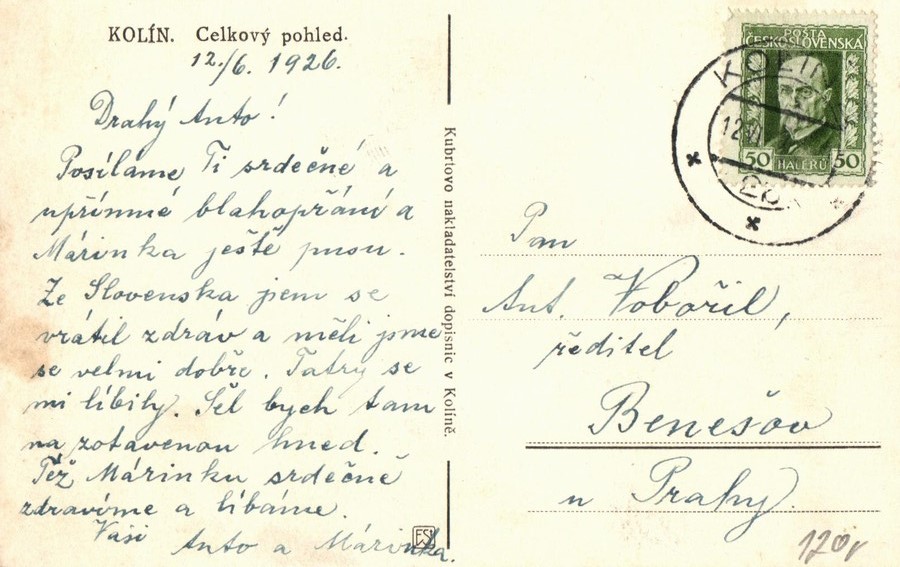 KOLÍN. Celkový pohled.
12./6. 1926.
Drahý Anto!
Posíláme Ti srdečné a
upřímné blahopřání a
Márinka ještě pusu.
Ze Slovenska jsem se
vrátil zdráv a měli jsme
se velmi dobře. Tatry se
mi líbily. Šel bych tam
na zotavenou hned.
Též Márinku srdečně
zdravíme a líbáme.
Vaši
Anto a Márinka.
Kubrtovo nakladatelství dopisnic v Kolíně.
POŠTA
ČESKOSLOVENSKÁ
50 HALÉŘŮ 50
KOLÍN
Pan
Ant. Vobořil,
ředitel
Benešov
u Prahy